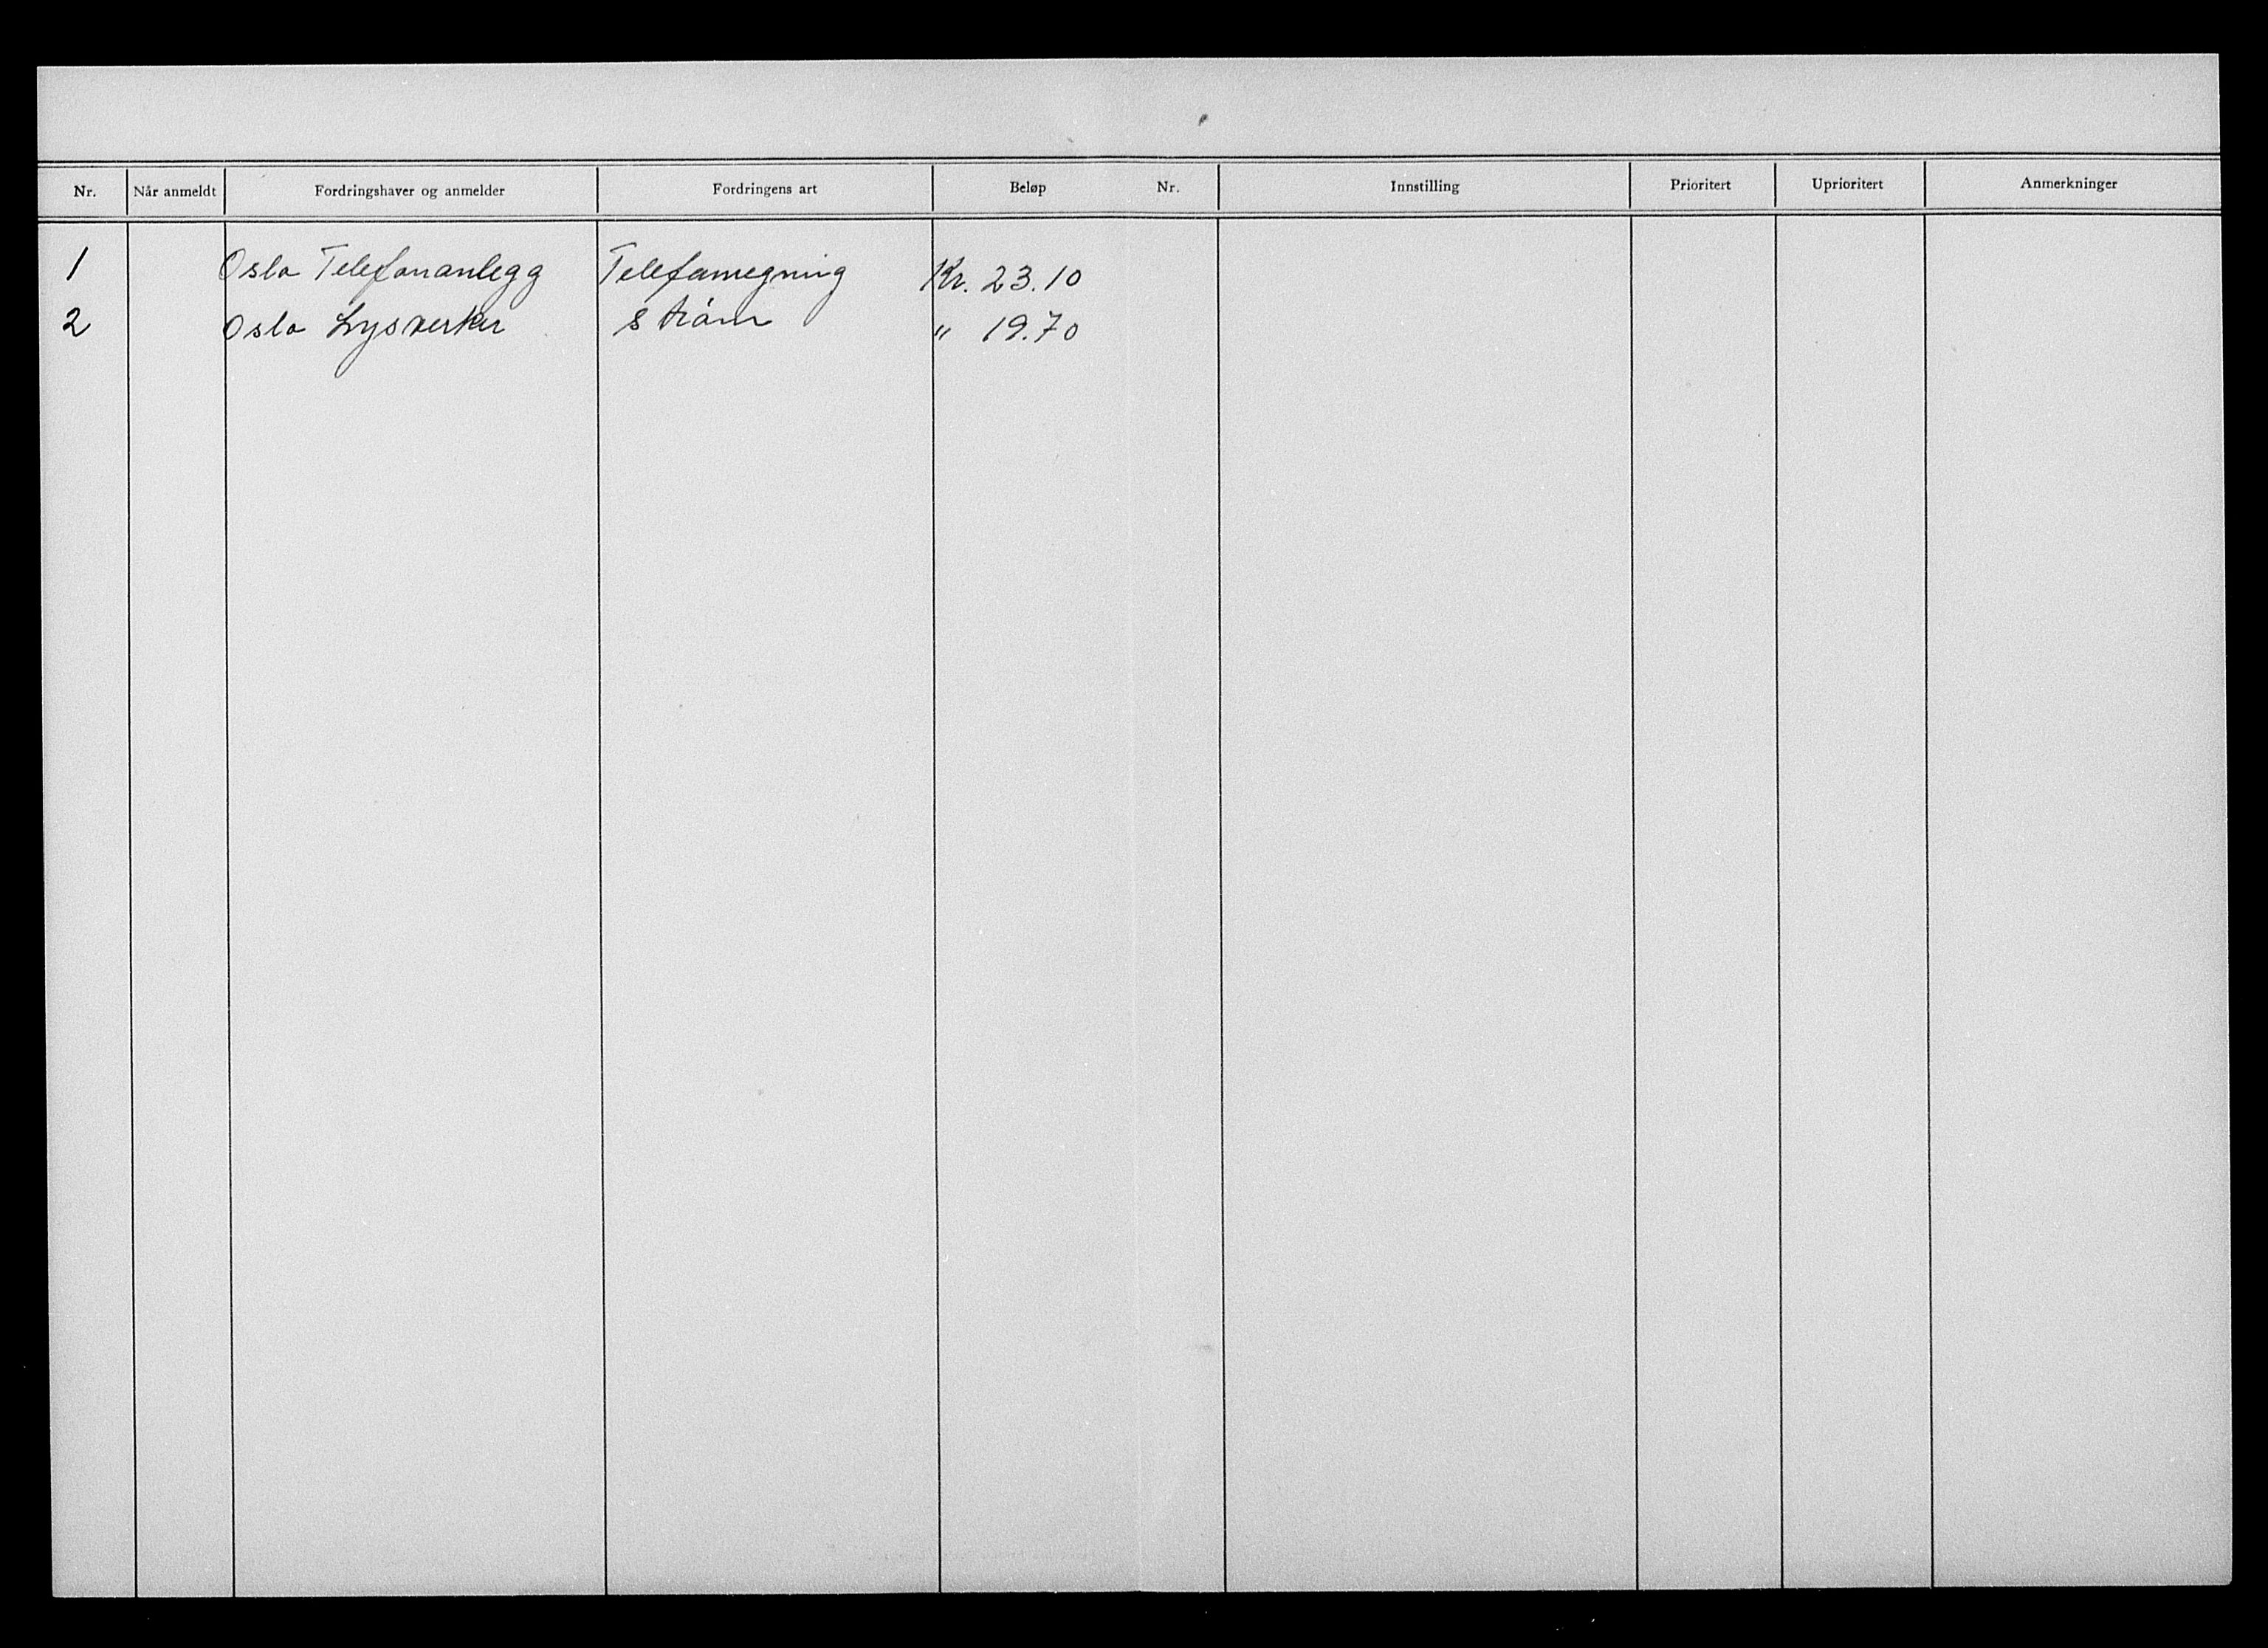 Nr. Når anmeldt Fordringshaver og anmelder Fordringens art Beløp Nr. Innstilling Prioritert Uprioritert Anmerkninger
1 Oslo Telefonanlegg Telefonregning Kr. 23.10
2 Oslo Lysverker strøm " 19.70